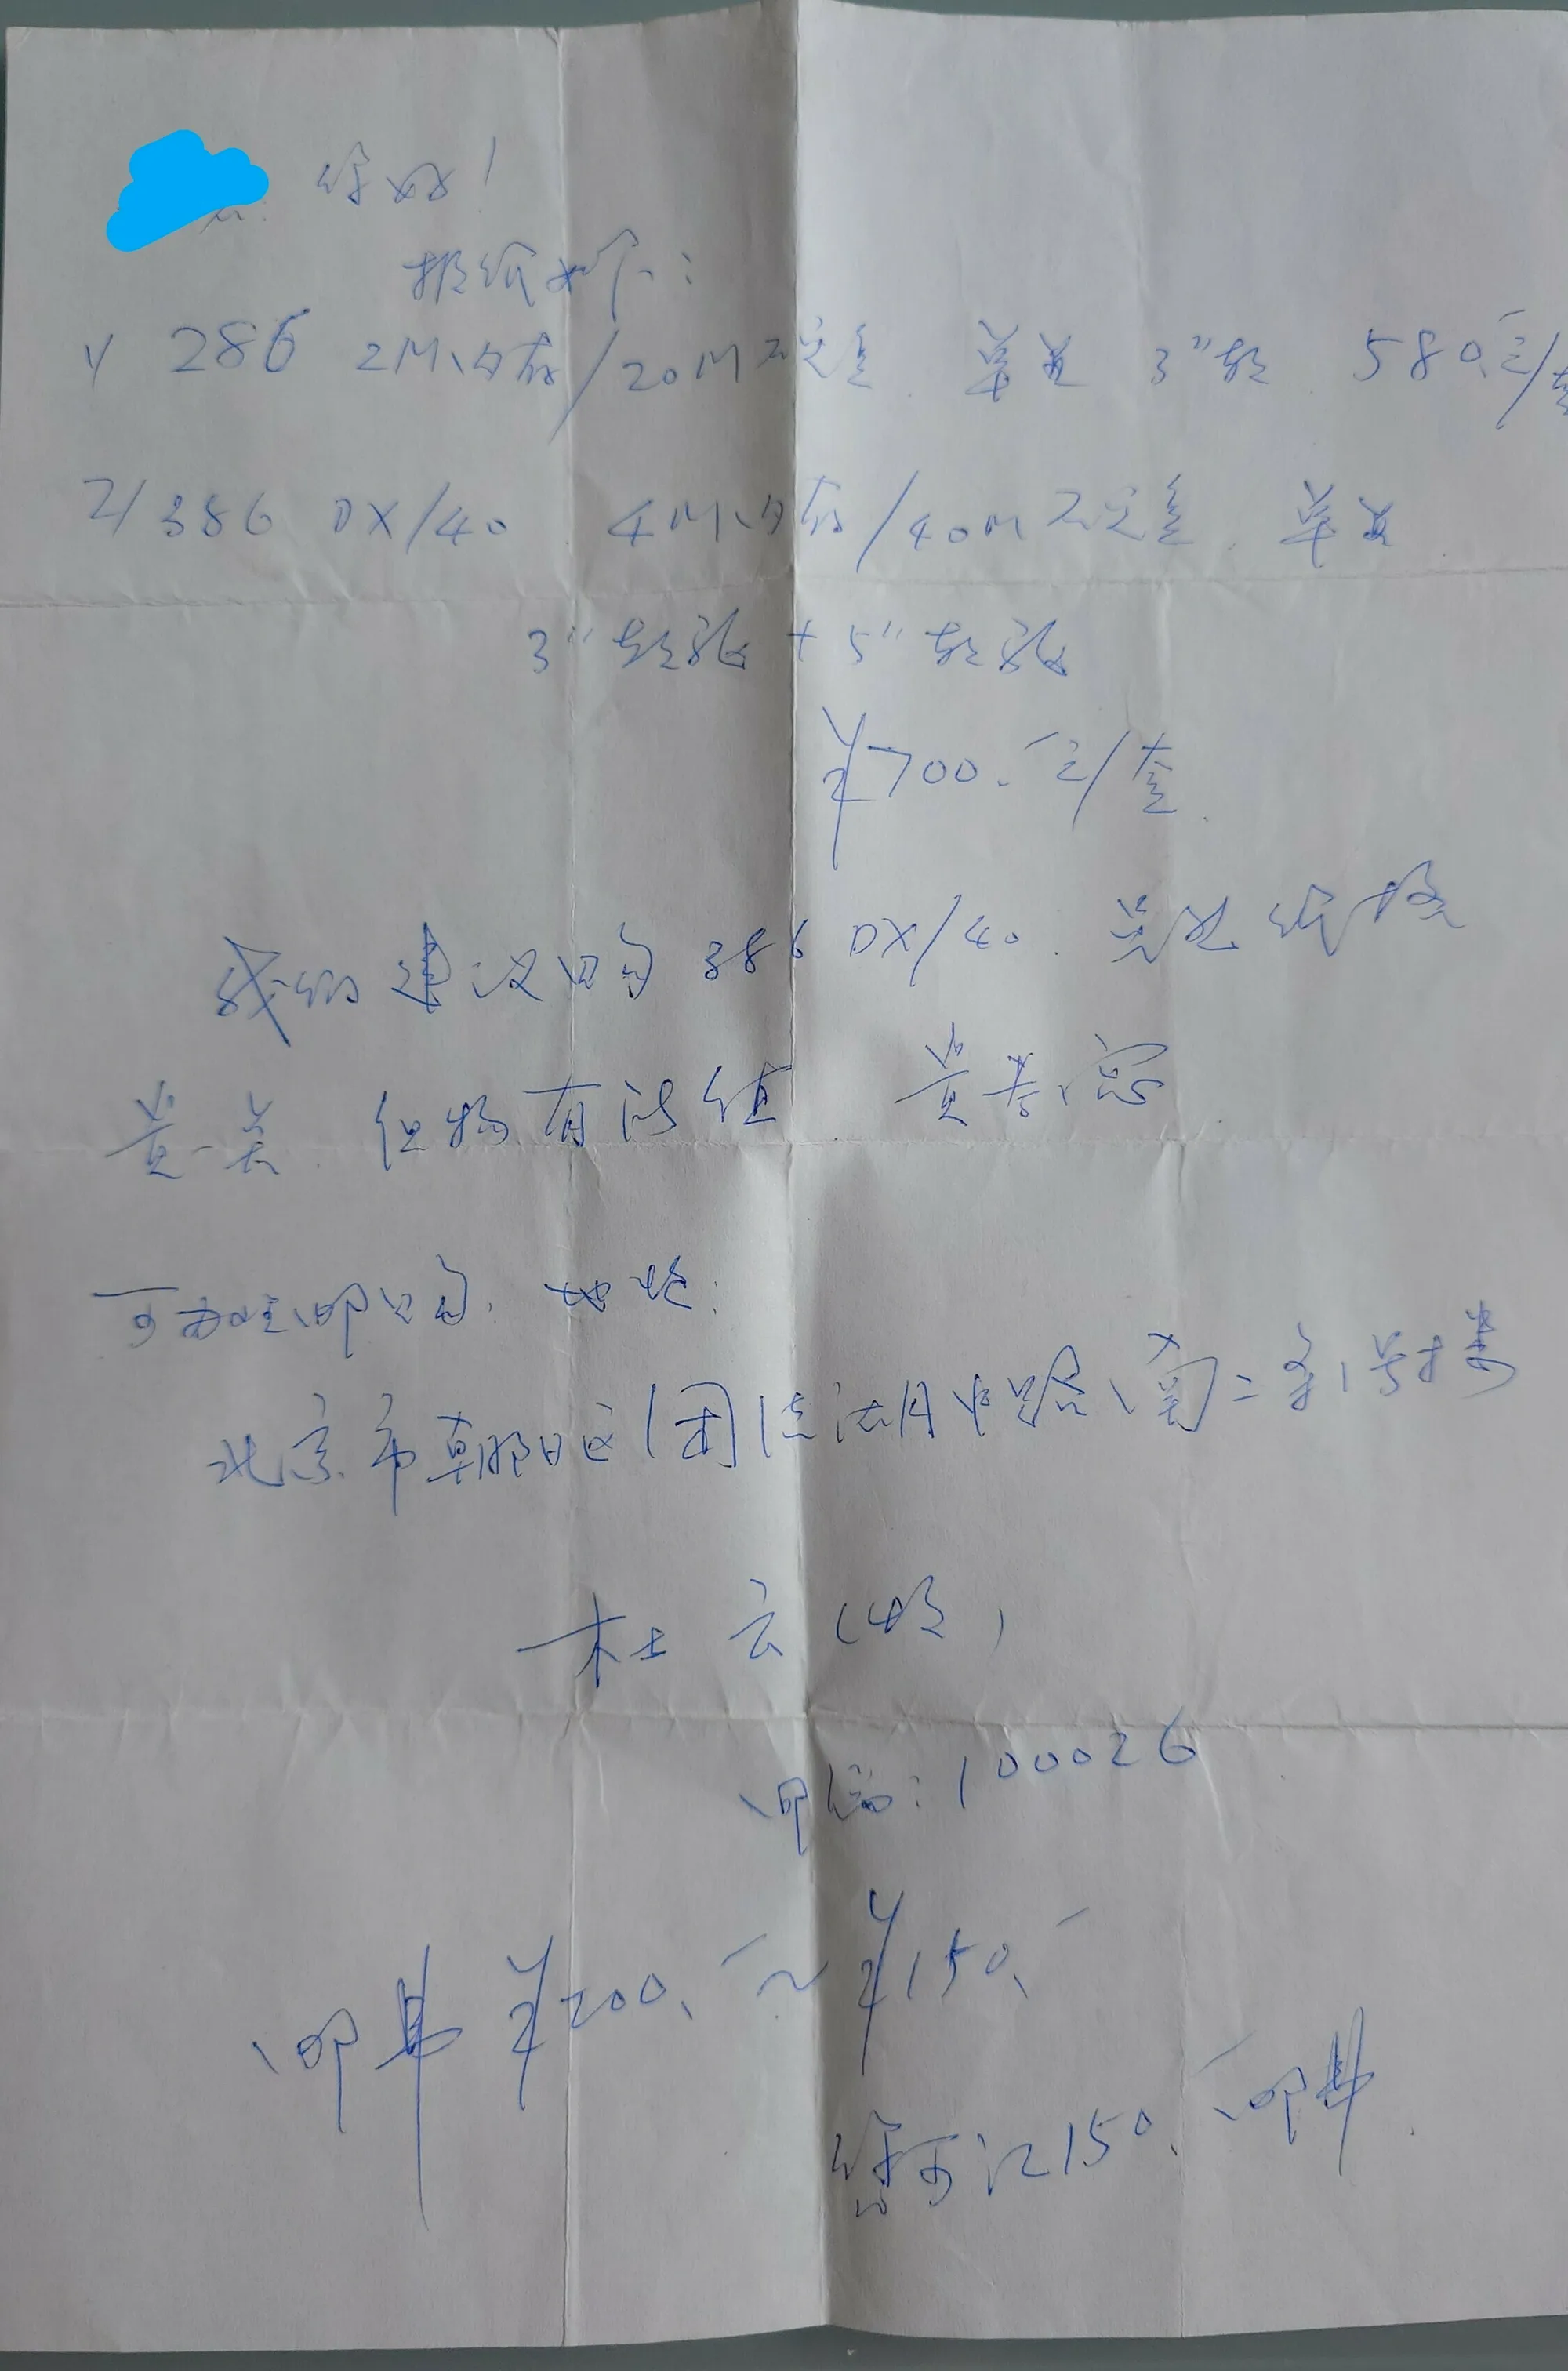 你好！
报价如下：
1/ 286 2M内存/20M硬盘. 单显 3"软 580.元/套
2/ 386 DX/40 4M内存/40M硬盘. 单显
3"软驱 + 5"软驱
¥700.元/套.
我的建议购 386 DX/40. 价格
贵一类. 但物有所值
可办理邮购. 地址:
北京市朝阳区团结湖中路南二条1号楼
杜云(收)
邮编: 100026
邮费 ¥200. ~ ¥150.
您可汇150. 邮费.